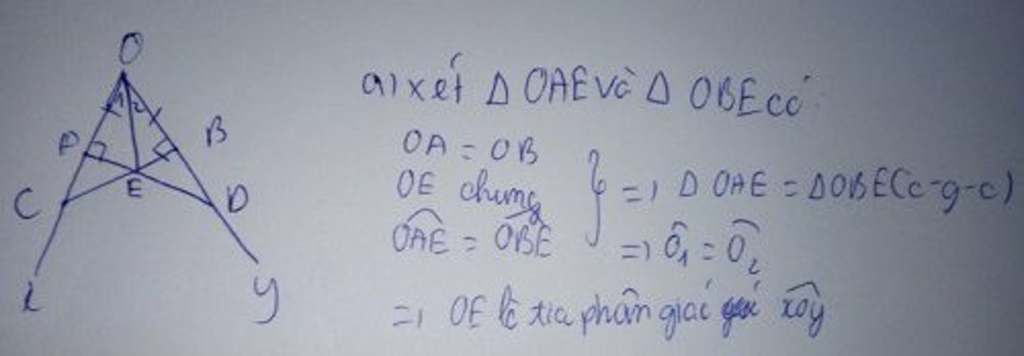 O
1 2
A B
E
C D
x y
a) xét Δ OAE và Δ OBE có
OA = OB
OE chung
OAE = OBE
=> Δ OAE = Δ OBE (c-g-c)
=> O1 = O2
=> OE là tia phân giác xOy